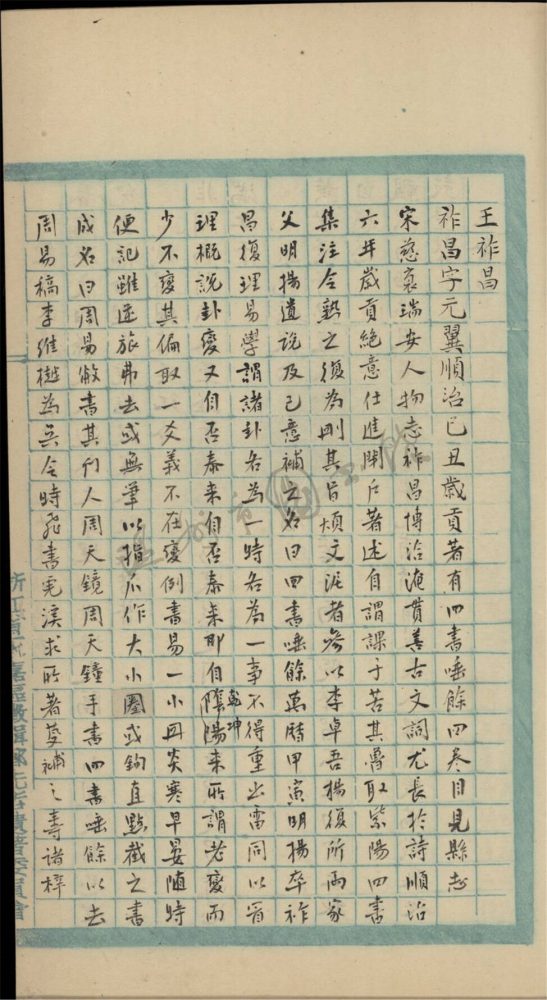 王祚昌
祚昌字元翼順治己丑歲貢著有四書唾餘四卷目見縣志
宋慈裒瑞安人物志祚昌博洽淹貫善古文詞尤長於詩順治
六年歲貢絕意仕進閉戶著述自謂課子苦其魯取紫陽四書
集注令熟之復為刪其旨煩文泥者參以李卓吾楊復所兩家
父明揚遺說及己意補之名曰四書唾餘 時甲寅明揚卒祚
昌復理易學謂諸卦各為一時各為一事不得重出雷同以署
理概說卦變又自否泰來自否泰來即自乾坤陰陽來所謂老變而
少不變其偏取一爻義不在變例書易一小冊炎寒早晏随時
便記雖逆旅弗去或無筆以指爪作大小圈或鈎直點截之書
成名曰周易敝書其刊人周天鏡周天鐘手書四書唾餘以去
周易稿李維樾為 令時飛書 溪求所著蔓補之壽諸梓